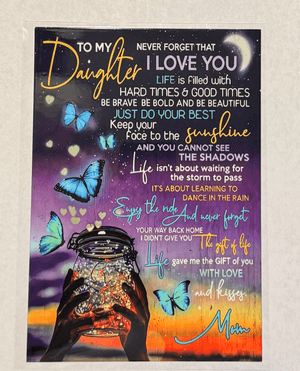 TO MY NEVER FORGET THAT
Daughter I LOVE YOU
LIFE is filled with
HARD TIMES & GOOD TIMES
BE BRAVE BE BOLD AND BE BEAUTIFUL
JUST DO YOUR BEST
Keep your
face to the sunshine
AND YOU CANNOT SEE
THE SHADOWS
Life isn't about waiting for
the storm to pass
IT'S ABOUT LEARNING TO
DANCE IN THE RAIN
Enjoy the ride And never forget
YOUR WAY BACK HOME
I DIDN'T GIVE YOU The gift of life
Life gave me the GIFT OF YOU
WITH LOVE
and kisses,
Mom